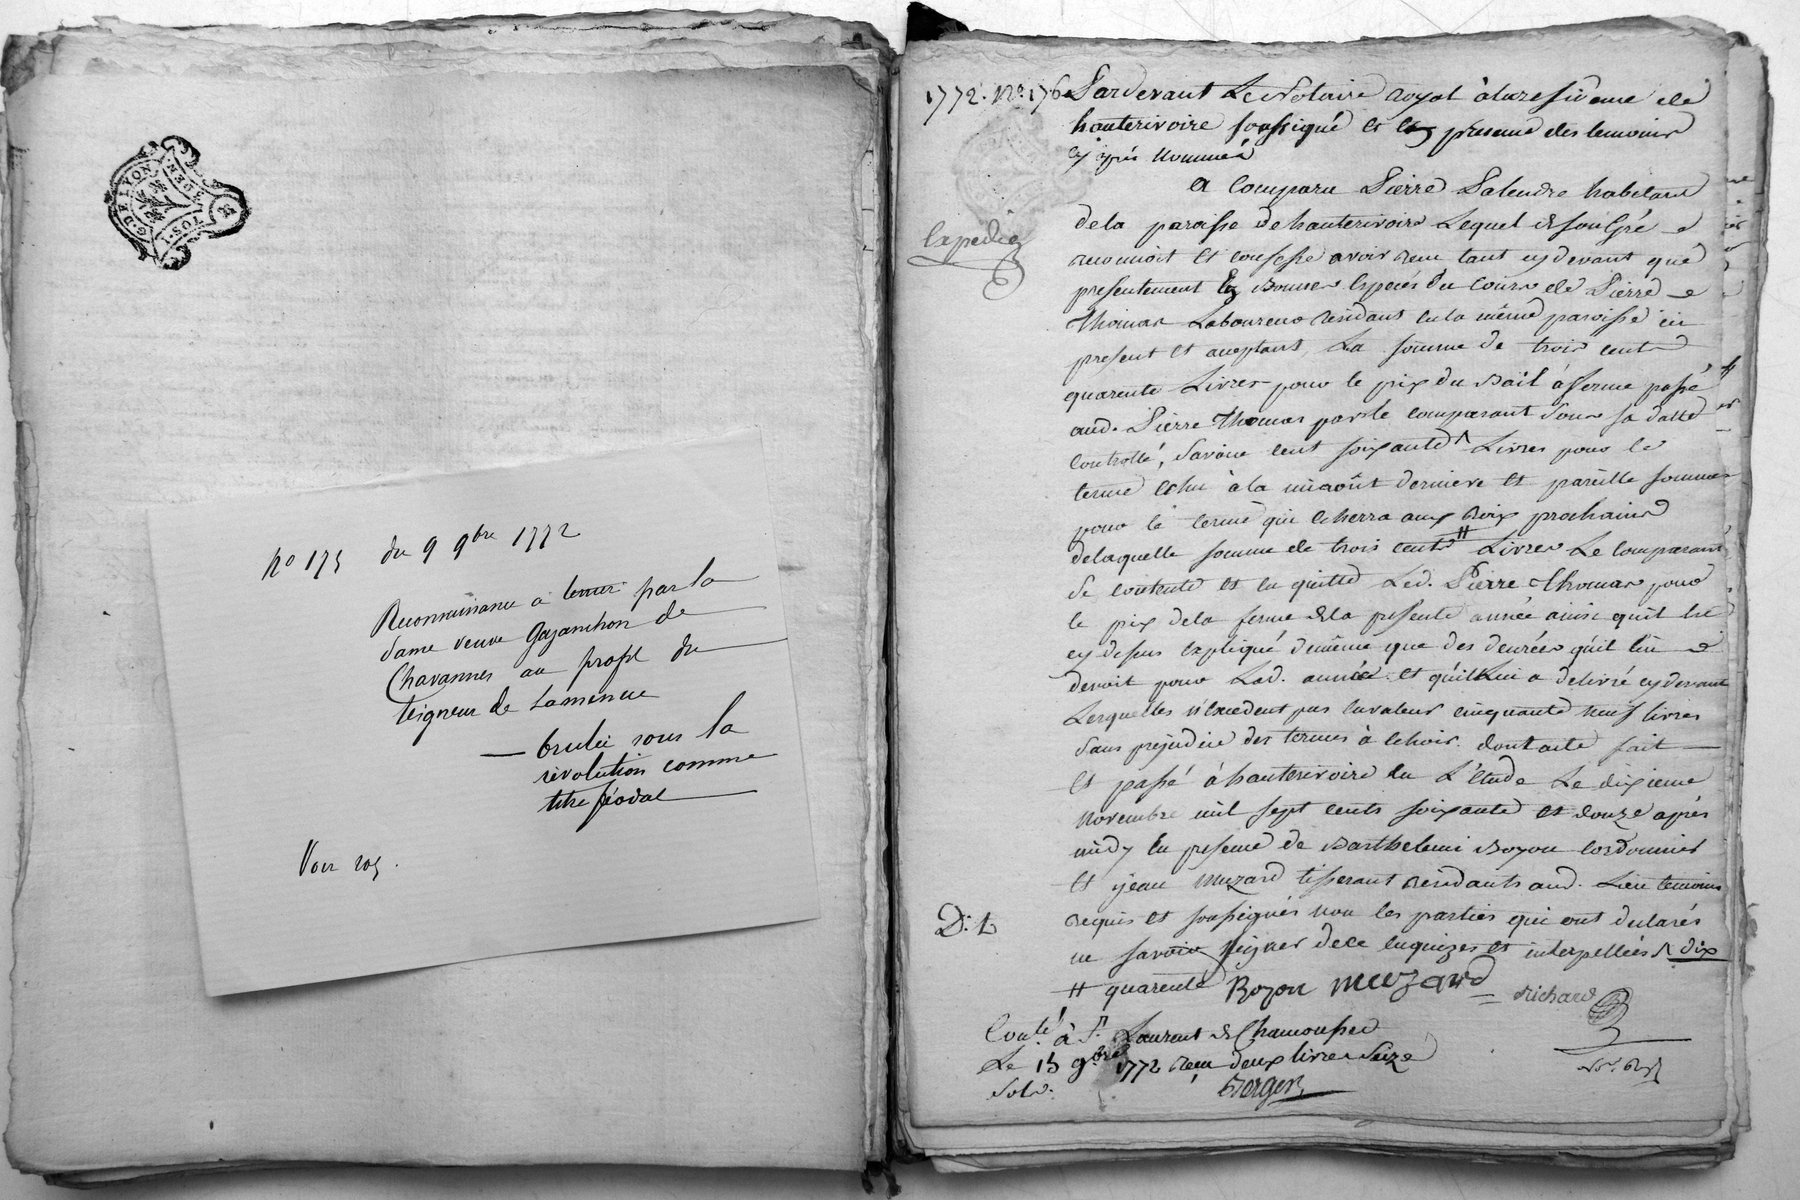 G. DE LYON
TOS. I
DEN.
no 175 du 9 9bre 1772
Reconnaissance à terrier par la
dame veuve Gazanchon de
Chavannes au profit du
seigneur de Lamenue
— brulée sous la
révolution comme
titre féodal
Voir 205.
1772. No. 176
Pardevant Le Notaire royal à la residence de
hauterivoire soussigné et en presence des temoins
cy après nommés
a comparu Pierre Palendre habitant
de la paroisse de hauterivoire Lequel de son Gré
reconnoit et confesse avoir reçu tant cy devant que
presentement en Bonnes Espèces du cours de Pierre
Thomas Laboureur résidant en la même paroisse ici
present et aceptant, La somme de trois cents
quarente Livres pour le prix du Bail à ferme passé
aud. Pierre Thomas par le comparant sous sa datte
Controllé, savoir cent soixante ^ Livres pour le
terme echu à la miaoût derniere et pareille somme
pour le terme qui echerra aux Roix prochains
de laquelle somme de trois cents # Livres Le comparant
se contente et en quitte Led. Pierre Thomas pour
le prix de la ferme de la presente année ainsi qu'il est
cy dessus expliqué de même que des denrées qu'il lui
devoit pour Lad. année et qu'il Lui a delivré cy devant
Lesquelles n'excedent pas la valeur cinquante neuf livres
sans prejudice des termes à echoir. dont acte fait
et passé à hauterivoire en L'etude Le dixieme
novembre mil sept cents soixante et douze après
midy en presence de Barthelemi Boyon cordonnier
et jean Muzard tisserant résidants aud. Lieu temoins
requis et soussignés non les parties qui ont declarés
ne savoir signer de ce enquizes et interpellées ^ dix
# quarente Boyon muzard
Richard
Expedié
D: L
Conté. à St. Laurent de Chamousset
Le 15 9bre 1772 reçu deux livres seize
sols.
Berger